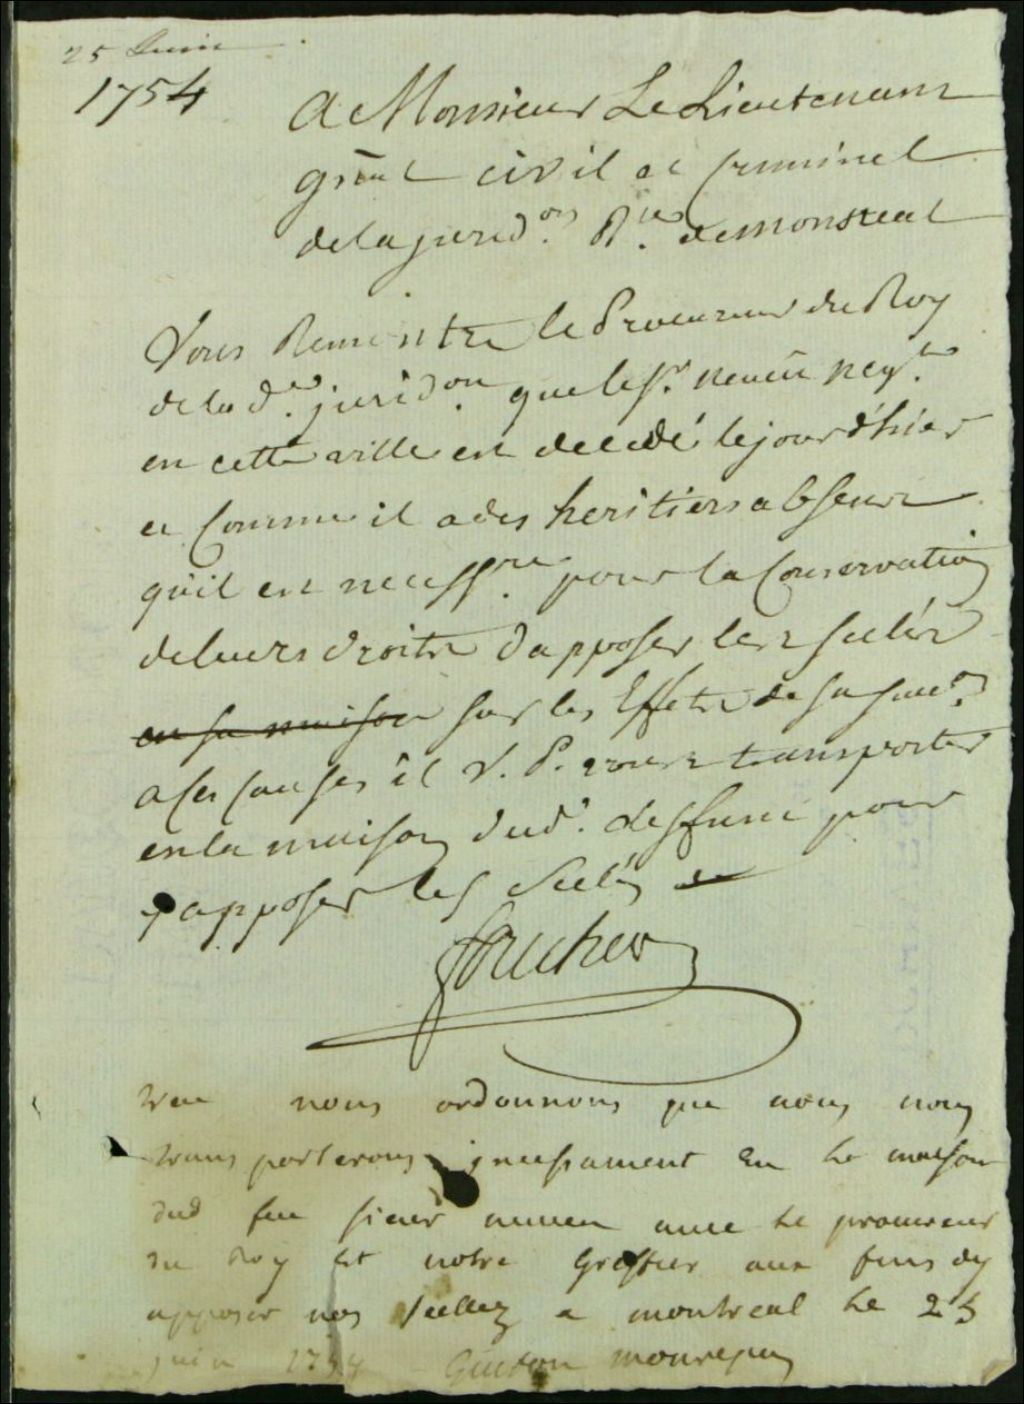 25 Juin
1754
A Monsieur Le Lieutenant
gñal civil et Criminel
de la jurid.on R.le de montreal
Vous Remontre le Procureur du Roy
de la d.e jurid.on que le S.r neveu neg.t
en cette ville est decedé le jour d'hier
et Comme il a des heritiers absents
qu'il est necess.re pour la Conservation
de leurs droits d'apposer les scelés
en sa maison sur les Effets de sa suc.on
a ces causes il V. P. vous transporter
en la maison dud. deffunt pour
y apposer les scelés
foucher
vu nous ordonnons que nous nous
transporterons incessament En la maison
dud feu sieur neveu avec le procureur
du Roy Et notre Greffier aux fins dy
apposer nos scellez a montreal le 25
juin 1754 Guiton monrepos